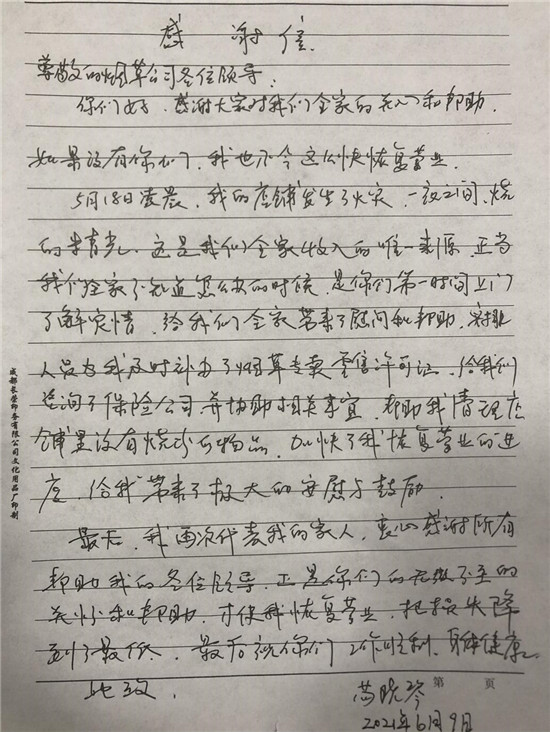 感谢信
尊敬的烟草公司各位领导:
你们好,感谢大家对我们全家的关心和帮助.
如果没有你们,我也不会这么快恢复营业.
5月18日凌晨,我的店铺发生了火灾,一夜之间,烧
的精光,这是我们全家收入的唯一来源,正当
我们全家不知道怎么办的时候,是你们第一时间上门
了解实情,给我们全家带来了慰问和帮助,安排
人员为我及时补办了烟草专卖零售许可证,给我们
咨询了保险公司并协助相关事宜,帮助我清理店
铺里没有烧坏的物品,加快了我恢复营业的进
度,给我带来了极大的安慰与鼓励.
最后,我再次代表我的家人,衷心感谢所有
帮助我的各位领导,正是你们的无微不至的
关怀和帮助,才使我恢复营业,把损失降
到了最低,最后祝你们工作顺利,身体健康
此致,
晓琴
2021年6月9日
第 页
成都长荣印务有限公司文化用品厂印制